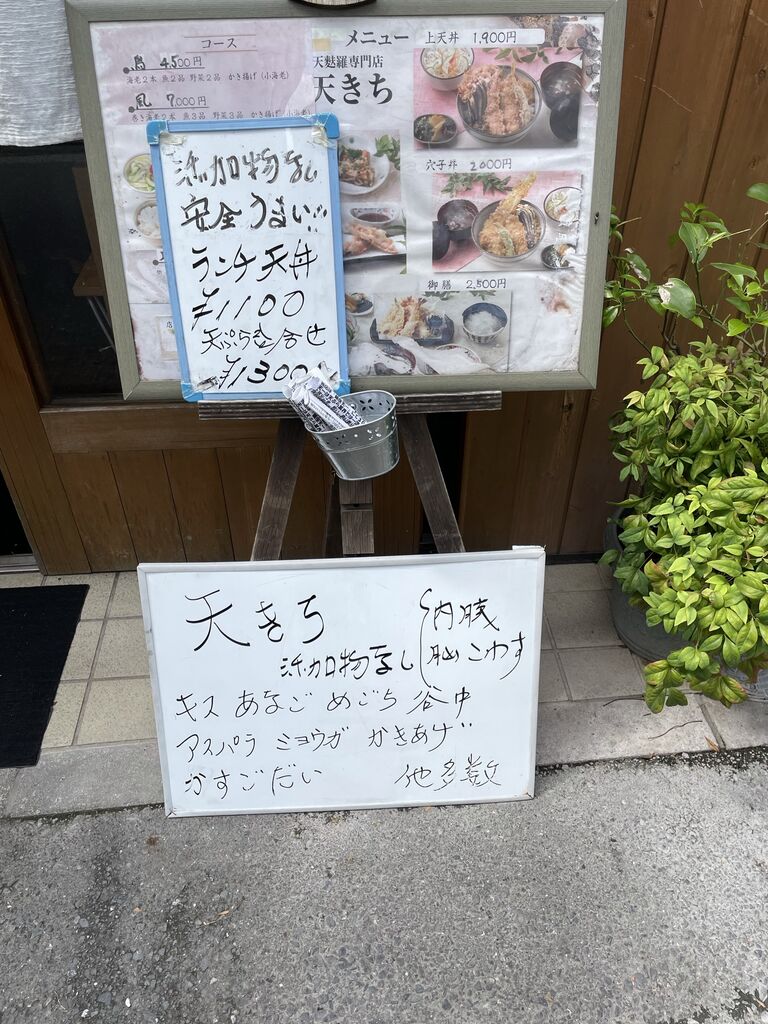 コース
鳥 4,500円
海老2本 魚2品 野菜2品 かき揚げ(小海老)
風 7,000円
巻き海老2本 魚3品 野菜3品 かき揚げ(小海老)
メニュー
天麩羅専門店
天きち
上天丼 1,900円
穴子丼 2,000円
御膳 2,500円
添加物なし
安全うまい!!
ランチ天丼
¥1100
天ぷら盛合せ
¥1300
天きち
添加物なし
内臓
脳こわす
キス あなご めごち 谷中
アスパラ ミョウガ かきあげ
かすごだい 他多数